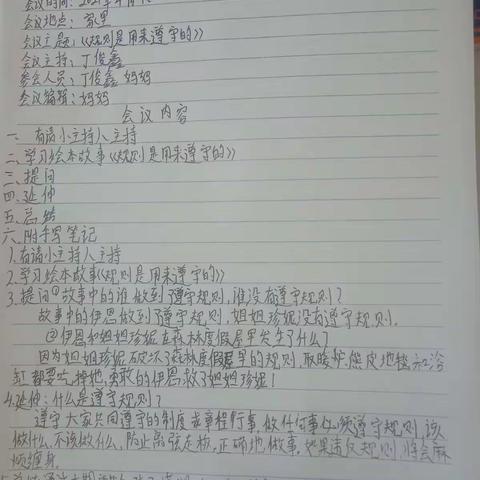 会议时间：2021年
会议地点：家里
会议主题：《规则是用来遵守的》
会议主持：丁俊鑫
参会人员：丁俊鑫 妈妈
会议编辑：妈妈
会议内容
一、有请小主持人主持
二、学习绘本故事《规则是用来遵守的》
三、提问
四、延伸
五、总结
六、附手写笔记
1.有请小主持人主持
2.学习绘本故事《规则是用来遵守的》
3.提问①故事中的谁做到了遵守规则，谁没有遵守规则？
故事中的伊恩做到了遵守规则，姐姐珍妮没有遵守规则。
②伊恩和姐姐珍妮在森林度假屋里发生了什么？
因为姐姐珍妮破坏了森林度假屋里的规则，取暖炉、熊皮地毯和浴
缸都要吃掉她，勇敢的伊恩救了姐姐珍妮！
4.延伸：什么是遵守规则？
遵守大家共同遵守的制度或章程行事，做任何事必须遵守规则，该
做什么，不该做什么，防止离弦走板，正确地做事，如果违反规则，将会麻
烦缠身。